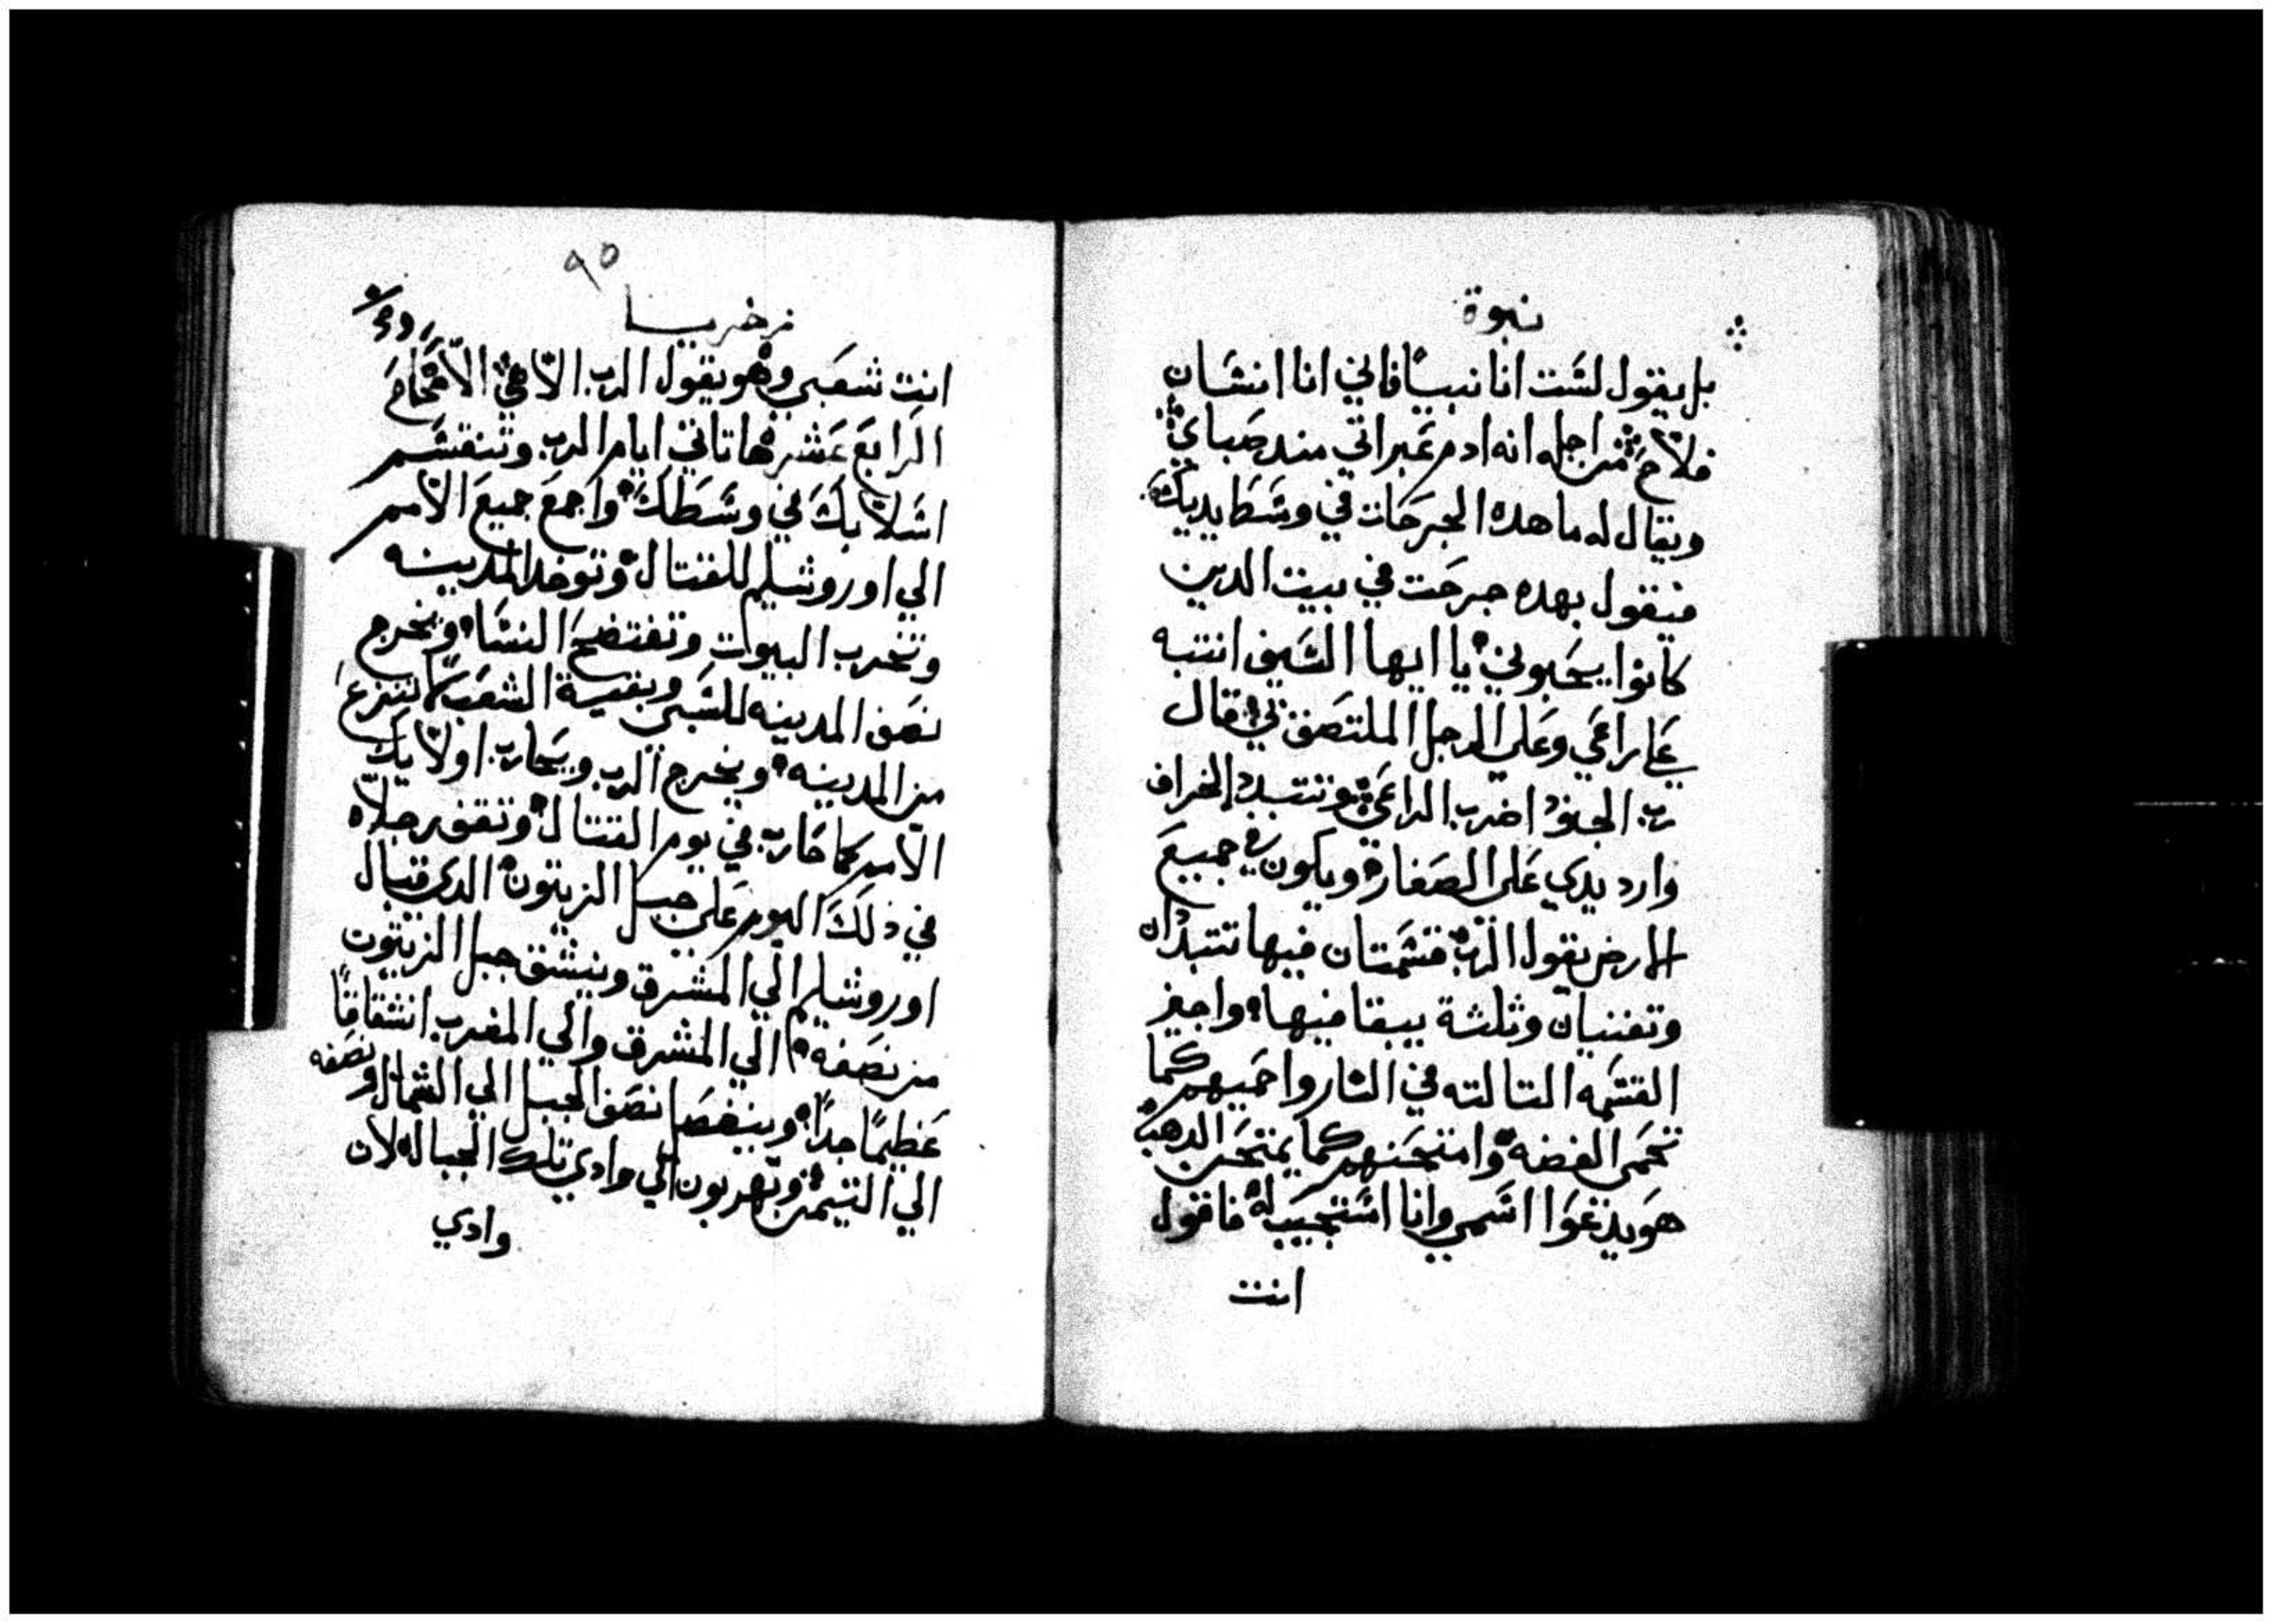 نبوة
بل يقول لست انا نبيا فاني انا انسان
فلاح من اجل انه ادم غبراتي مند صباي
ويقال له ما هده الجرحات في وسط يديك
فيقول بهده جرحت في بيت الدين
كانوا يحبوني يا ايها السيف انتبه
علي راعي وعلي الرجل الملتصق بي قال
رب الجنود اضرب الراعي وتتبدد الخراف
وارد يدي على الصغار ويكون في جميع
الارض يقول الرب قسمتان فيها تتبددان
وتفنيان وثلثة يبقا فيها واجيز
القسمه التالته في النار واحميهم كما
تحمى الفضه وامتحنهم كما يمتحن الدهب
هو يدعوا اسمي وانا استجيب له فاقول
انت
٩٥
زخريا
انت شعبي وهو يقول الرب الاهي الاصحاح
الرابع عشر ها تاتي ايام الرب وتنقسم
اسلابك في وسطك واجمع جميع الامم
الي اوروشليم للقتال وتوخد المدينه
وتخرب البيوت وتفتضح النسا ويخرج
نصف المدينه للسبي وبقية الشعب لا تنزع
من المدينه ويخرج الرب ويحارب اولايك
الامم كما حارب في يوم القتال وتقف رجلاه
في ذلك اليوم على جبل الزيتون الدي قبال
اوروشليم الي المشرق وينشق جبل الزيتون
من نصفه الي المشرق والي المغرب انشقاقا
عظيما جدا وينفصل نصف الجبل الي الشمال ونصفه
الي التيمن وتهربون الي وادي تلك الجبال لان
وادي